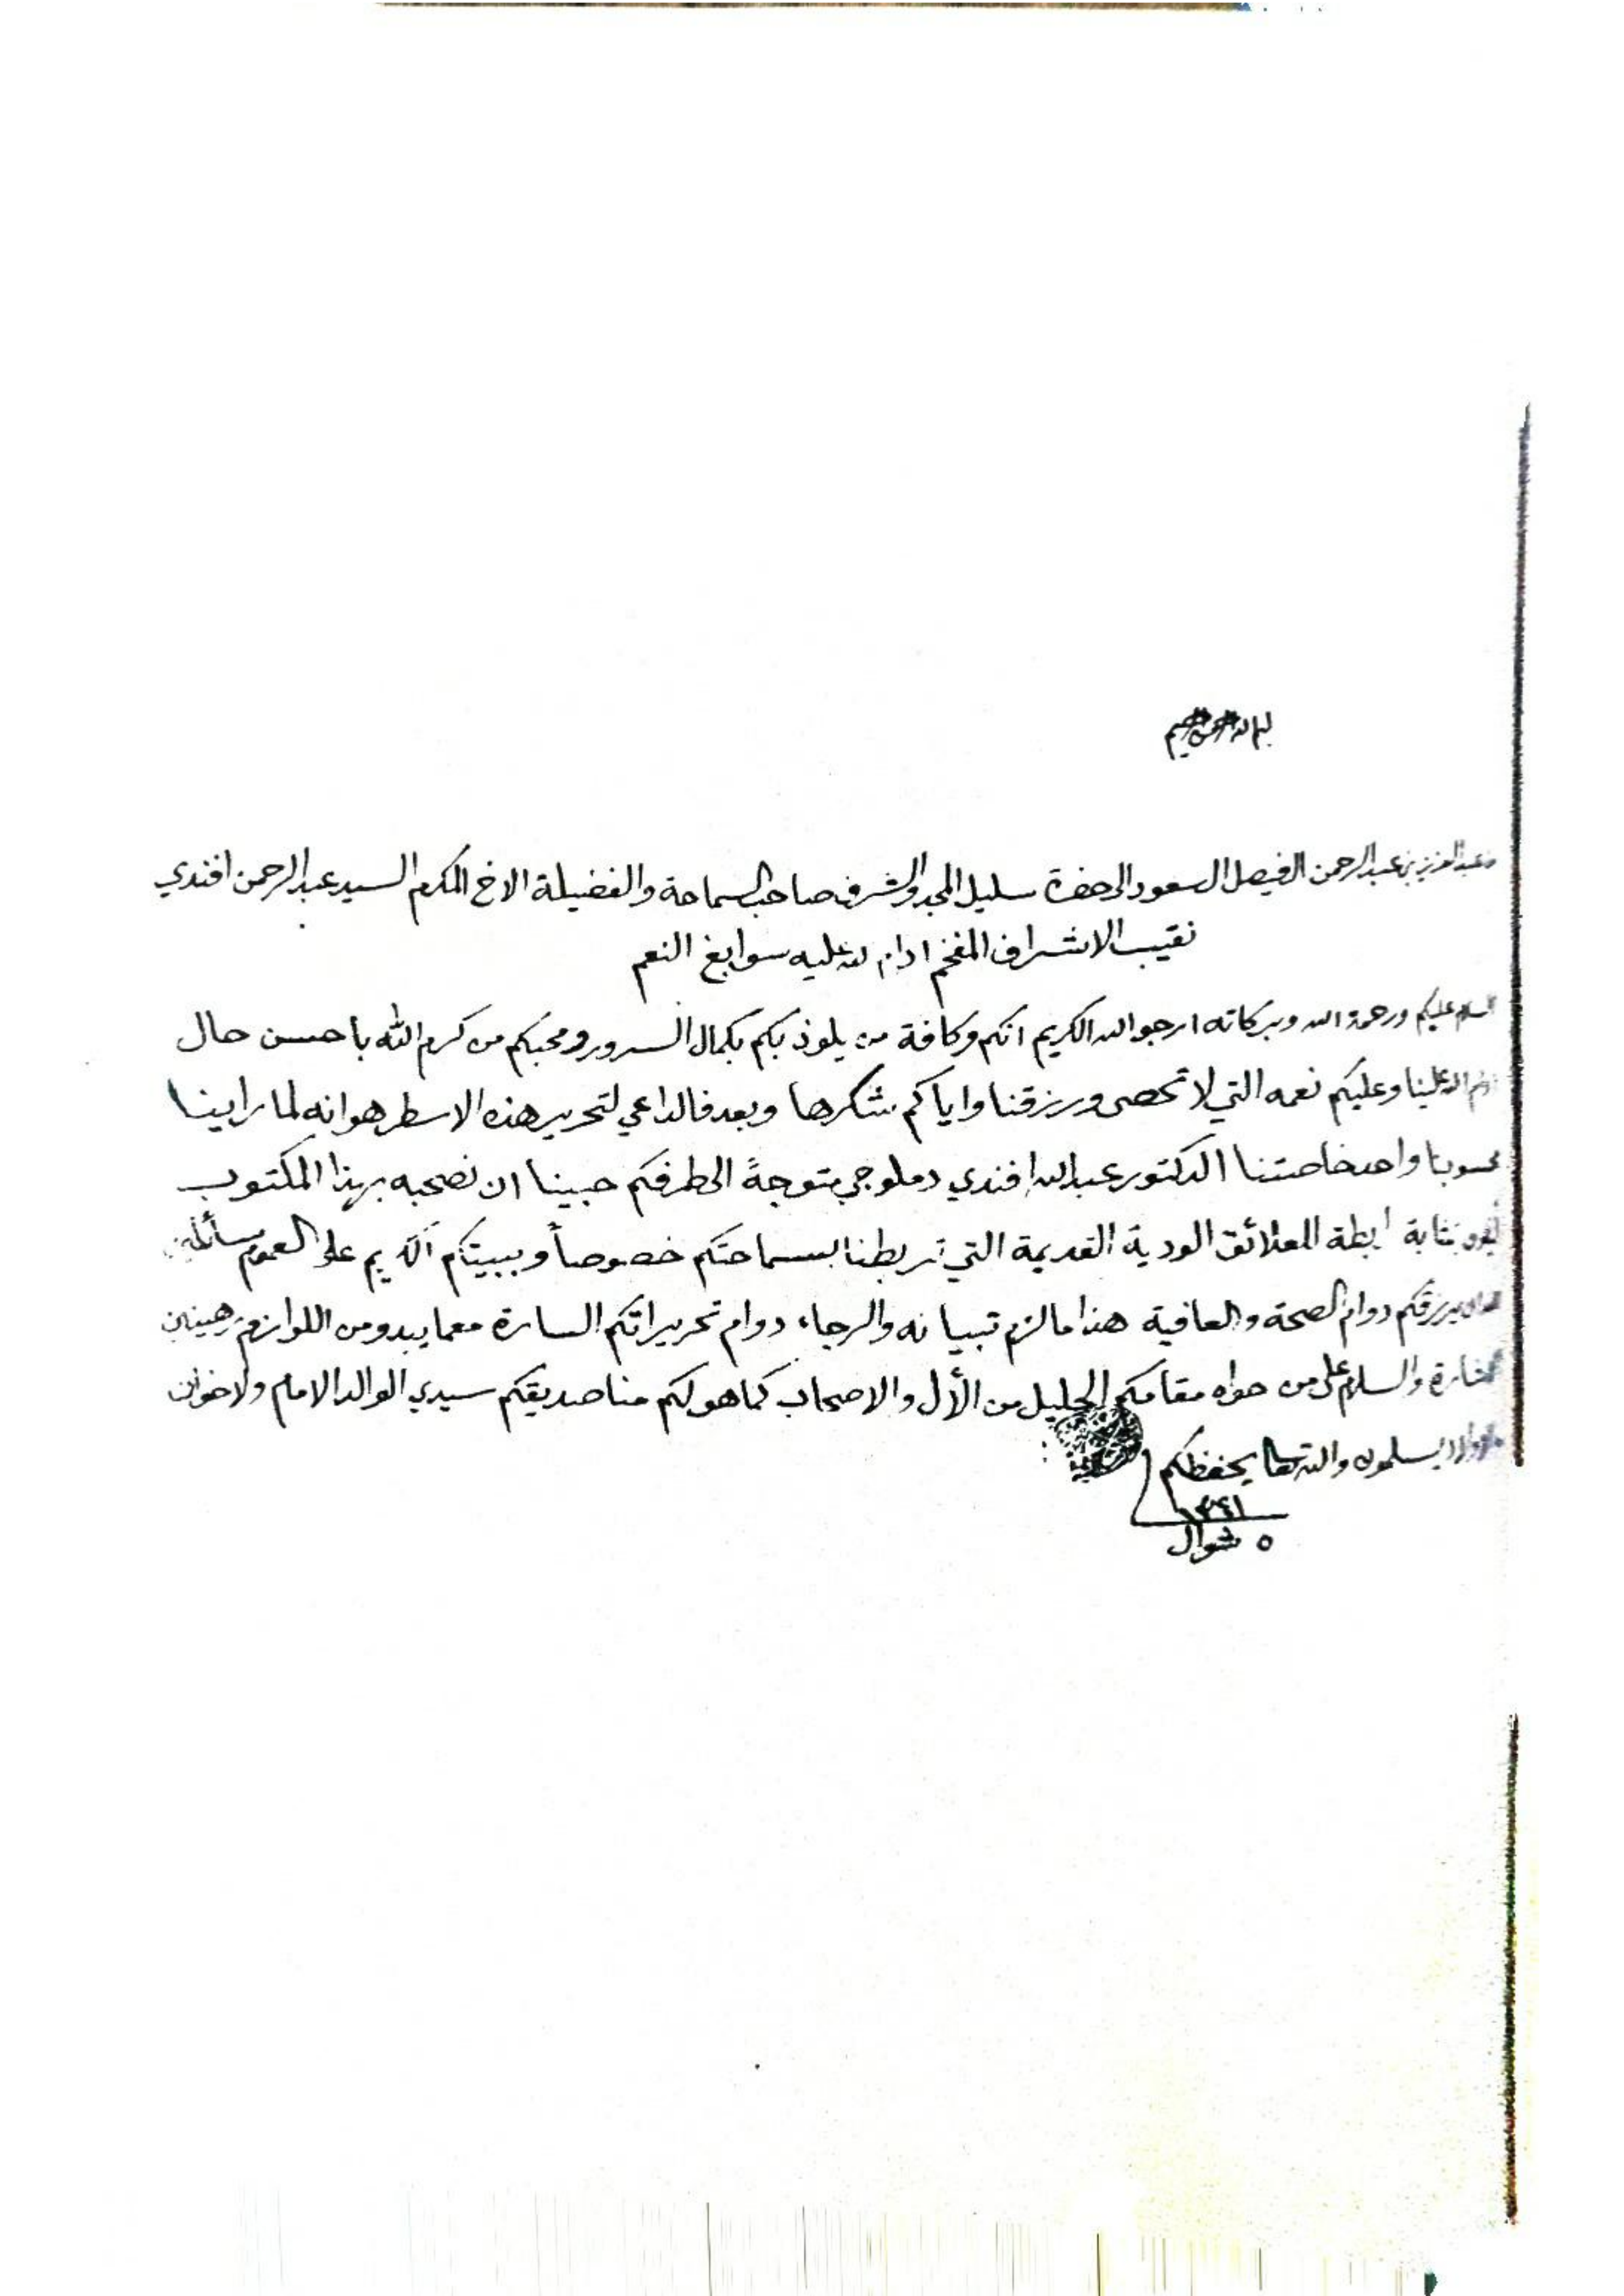 بسم الله الرحمن الرحيم
من عبد العزيز بن عبد الرحمن الفيصل السعود الى حضرة سليل المجد والشرف صاحب السماحة والفضيلة الاخ المكرم السيد عبد الرحمن افندي
نقيب الاشراف المفخم ادام الله عليه سوابغ النعم
السلام عليكم ورحمة الله وبركاته ارجو الله الكريم انكم وكافة من يلوذ بكم بكمال السرور ومحبكم من كرم الله باحسن حال
ادام الله علينا وعليكم نعمه التي لا تحصى ورزقنا واياكم شكرها وبعد فالداعي لتحرير هذه الاسطر هو انه لما راينا
محسوبنا واحد خاصتنا الدكتور عبد الله افندي دملوجي متوجهً الى طرفكم حبينا ان نصحبه بهذا المكتوب
ليكون بمثابة رابطة للعلائق الودية القديمة التي تربطنا بسماحتكم خصوصاً وببيتكم الكريم على العموم سائلين
الله ان يرزقكم دوام الصحة والعافية هذا ما لزم تبيانه والرجاء دوام تحريراتكم السارة مع ما يبدو من اللوازم رهينين
الاشارة والسلام على من حواه مقامكم الجليل من الأل والاصحاب كما هو لكم منا صديقكم سيدي الوالد الامام والاخوان
والاولاد يسلمون والله تعالى يحفظكم
١٣٤١
٥ شوال